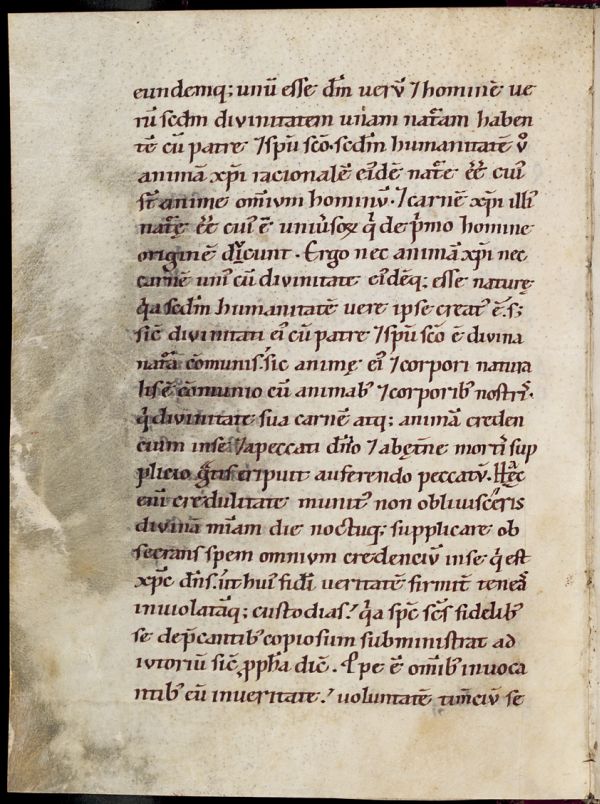 eundemq; unū esse dm̄ verū ⁊ hominē ve
rū scdm̄ divinitatem unam natam̄ haben
tē cū patre ⁊ spū scō. scdm̄ humanitatē v̊
animā xp̄i racionalē ei'dē natę ēē cui'
st̄ anime omīvm hominū. ⁊ carnē xp̄i illi'
natę ēē cui' ē uniu'soꝝ q̇ de p'mo homine
originē ducunt. Ergo nec animā xp̄i nec
carnē uni' cū divinitate ei'dēq; esse naturę
q̇a scdm̄ humanitatē vere ipse creat' ē. s;
sic̄ divinitati ei' cū patre ⁊ spū scō ē divina
nat̄a cōmunis. sic animę ei' ⁊ corpori natura
lis ē cōmunio cū animab' ⁊ corporib' nostri'.
q̇ divinitate sua carnē atq; animā creden
cium in se ⁊ a peccati dn̄io ⁊ ab ęt̄ne morti' sup
plicio gr̄tis eripuit auferendo peccatū. Hęc
enī credulitate munit' non obliviscēris
divinā mīam die noctuq; supplicare ob
secrans spem omnivm credenciū in se q̇ est
xp̄c dn̄s. ut hui' fidei veritatē firmit̄ teneā'
inviolatāq; custodias. q̇a sp̄c sc̄s fidelib'
se dep̄cantib' copiosum subministrat ad
ivtoriū sic̄ ꝓph̄a dic̄. Ꝓpe ē om̄ib' invoca
ntib' eū in veritate. voluntatē tim̄ciū se